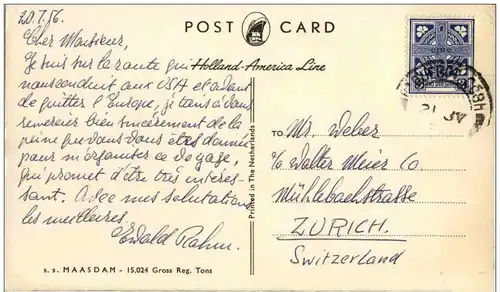 POST CARD
20.7.56.
Cher Monsieur,
Je suis sur la route qui
Holland-America Line
nous conduit aux USA et avant
de quitter l'Europe, je tans à vous
remercier bien sincèrement de la
peine que vous vous êtes donnée
pour m'organiser ce voyage,
qui promet d'être très intéres-
sant. Avec mes salutations
les meilleures.
Ewald Rahm.
s.s. MAASDAM - 15,024 Gross Reg. Tons
Printed in The Netherlands
TO: Mr. Weber
c/o Walter Meier Co
Mühlebachstrasse
ZURICH.
Switzerland